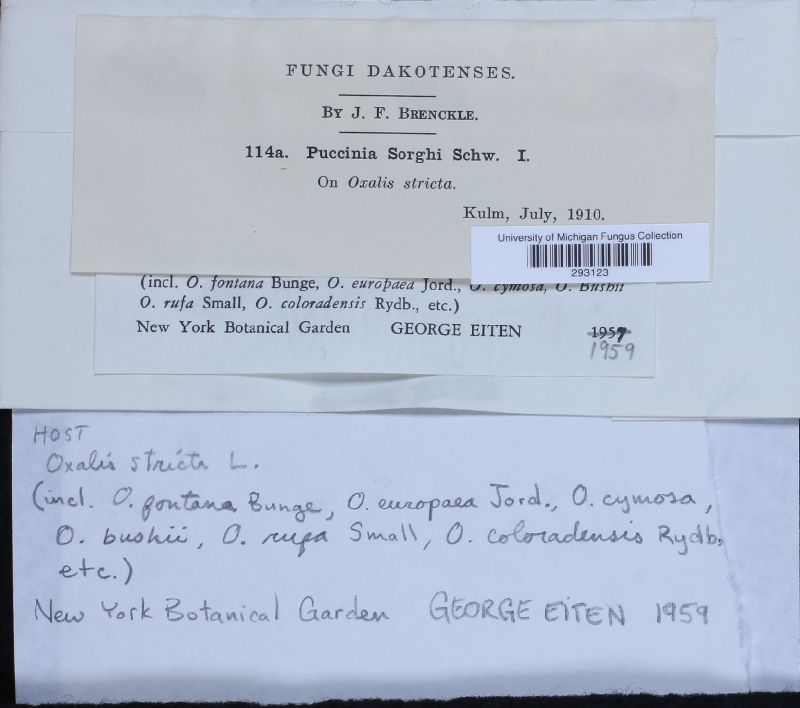 FUNGI DAKOTENSES.
By J. F. Brenckle.
114a. Puccinia Sorghi Schw. I.
On Oxalis stricta.
Kulm, July, 1910.
University of Michigan Fungus Collection
293123
(incl. O. fontana Bunge, O. europaea Jord., O. cymosa, O. Bushii
O. rufa Small, O. coloradensis Rydb., etc.)
New York Botanical Garden GEORGE EITEN 1957
1959
HOST
Oxalis stricta L.
(incl. O. fontana Bunge, O. europaea Jord., O. cymosa,
O. bushii, O. rufa Small, O. coloradensis Rydb.,
etc.)
New York Botanical Garden GEORGE EITEN 1959